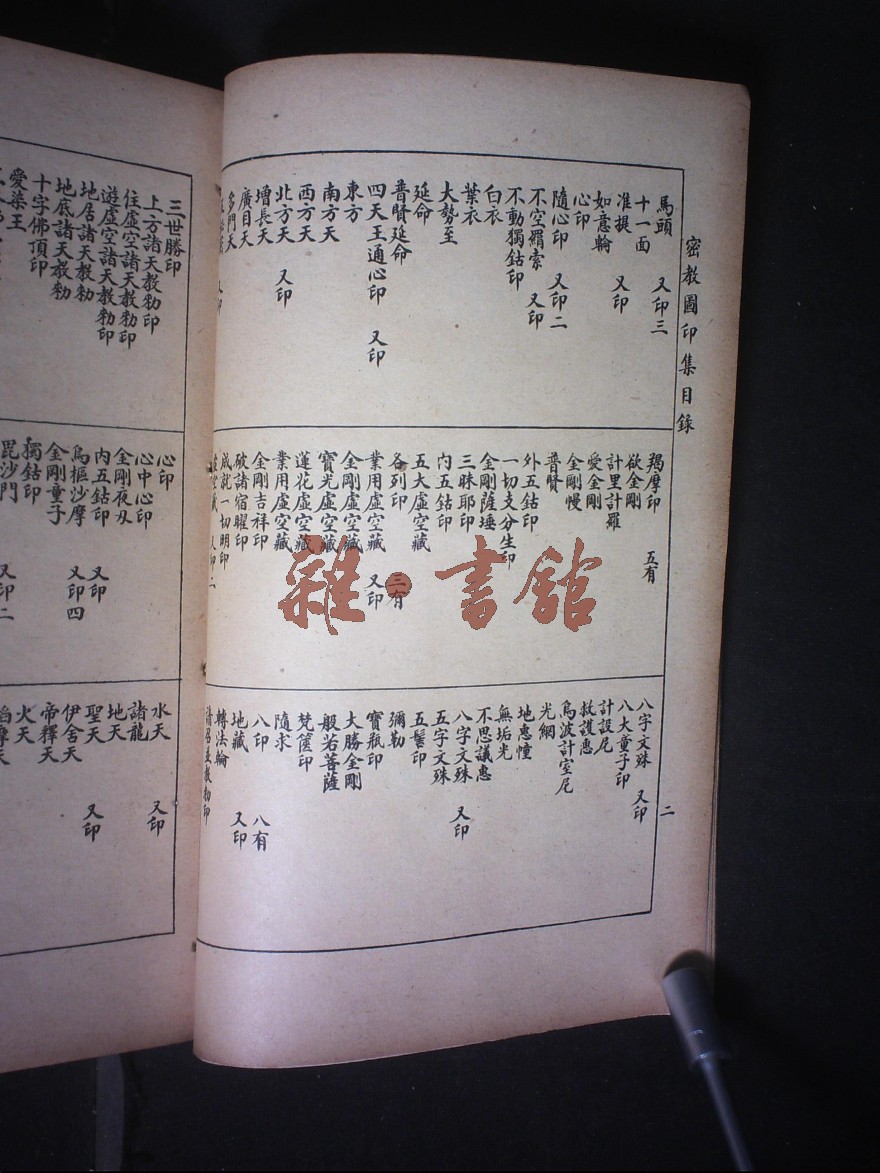 密教圖印集目錄
二
馬頭 又印三
十一面
准提 又印
如意輪
心印
隨心印 又印二
不空羂索 又印
不動獨鈷印
白衣
葉衣
大勢至
延命
普賢延命
四天王通心印 又印
東方
南方天
西方天
北方天 又印
增長天
廣目天
多門天
羯磨印 五有
欲金剛
計里計羅
愛金剛
金剛慢
普賢
外五鈷印
一切支分生印
金剛薩埵
三昧耶印
內五鈷印
五大虛空藏
各列印 三有
業用虛空藏 又印
金剛虛空藏
寶光虛空藏
蓮花虛空藏
業用虛空藏
金剛吉祥印
破諸宿曜印
成就一切明印
又印二
八字文殊 又印
八大童子印
計設尼
救護惠
烏波計室尼
光網
地惠幢
無垢光
不思議惠
八字文殊 又印
五字文殊
五髻印
彌勒
寶瓶印
大勝金剛
般若菩薩
梵篋印
隨求
八印 八有
地藏 又印
轉法輪
請召並教勑印
三世勝印
上方諸天教勑印
住虛空諸天教勑印
遊虛空諸天教勑印
地居諸天教勑
地底諸天教勑
十字佛頂印
愛染王
心印
心中心印
金剛夜叉
內五鈷印 又印
烏樞沙摩 又印四
金剛童子
獨鈷印
毘沙門 又印二
水天 又印
諸龍
地天
聖天 又印
伊舍天
帝釋天
火天
焰摩天
雜·書館